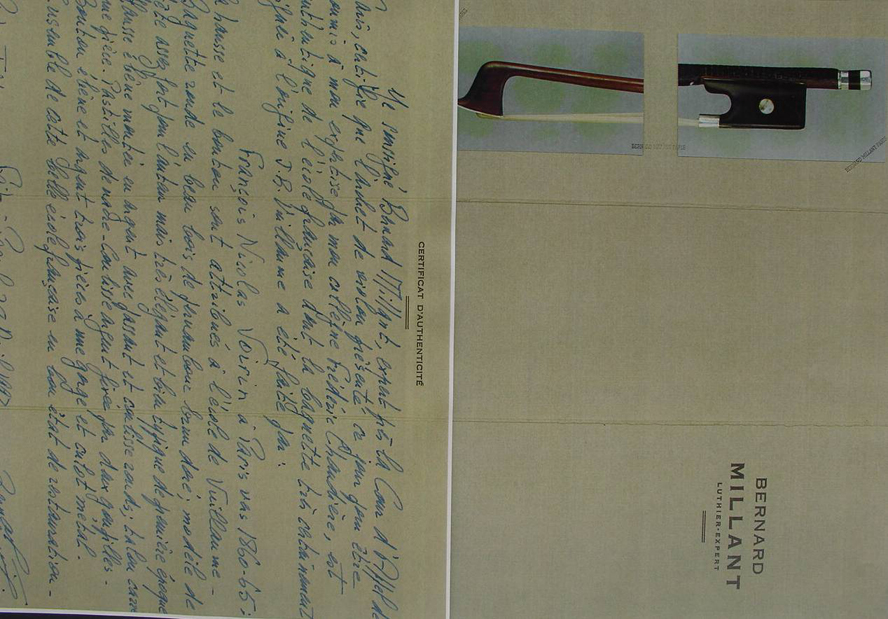 BERNARD
MILLANT
LUTHIER-EXPERT
CERTIFICAT D'AUTHENTICITÉ
Je soussigné Bernard Millant, expert près la Cour d'Appel de
Paris, certifie que l'archet de violon présenté ce jour
soumis à mon expertise par mon collègue Frédéric Chaudière, est
authentique de l'école française dont la baguette très certainement
à l'origine J.B. Vuillaume a été faite par:
François Nicolas Voirin à Paris vers 1860-65;
la hausse et le bouton sont attribués à l'école de Vuillaume-
Baguette ronde en beau bois de pernambouc brun doré; modèle de
tête assez fort pour l'auteur mais très élégant et bien typique de première époque
Hausse ébène montée en argent avec passant et coulisse ronds; talon carré
une pièce. Pastilles de nacre-Coulisse argent fixée par deux goupilles-
Bouton ébène et argent trois pièces à une gorge et culot métal.
L'ensemble de cette belle école française en bon état de restauration-